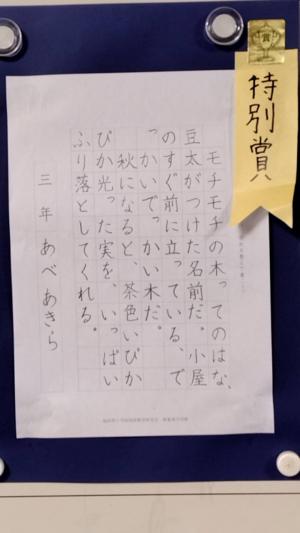 賞
特別賞
モチモチの木ってのはな、
豆太がつけた名前だ。小屋
のすぐ前に立っている、で
っかいでっかい木だ。
秋になると、茶色いぴか
ぴか光った実を、いっぱい
ふり落としてくれる。
三年 あべあきら